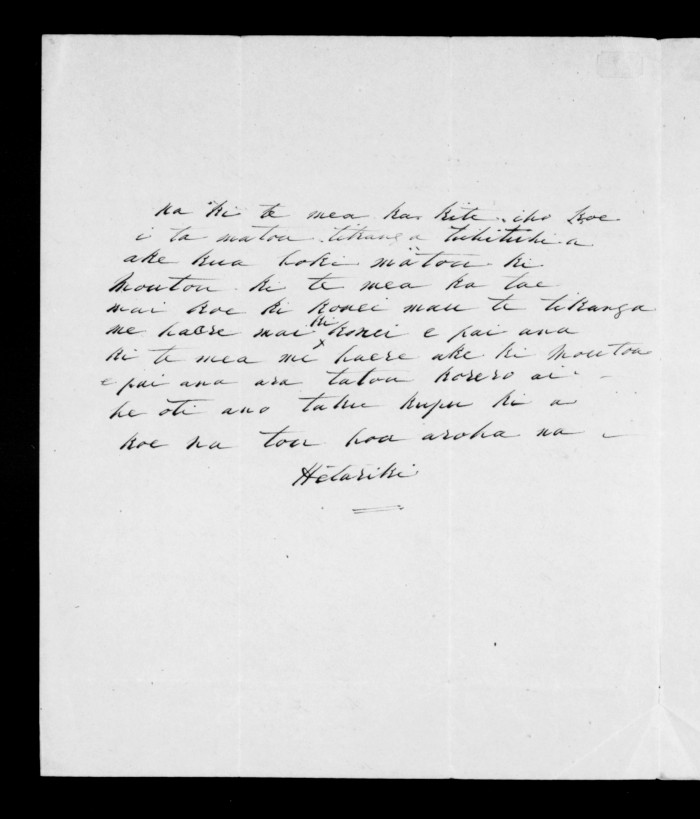 na ki te mea ka kite iho koe
i ta matou tikanga tuhituhi a
ake kua hoki matou ki
Moutoa ki te mea ka tae
mai koe ki konei mau te tikanga
me haere mai ki konei e pai ana
ki te mea me haere ake ki Moutoa
e pai ana ara tatou korero ai -
he oti ano taku kupu ki a
koe na tou hoa aroha na -
Hetariki